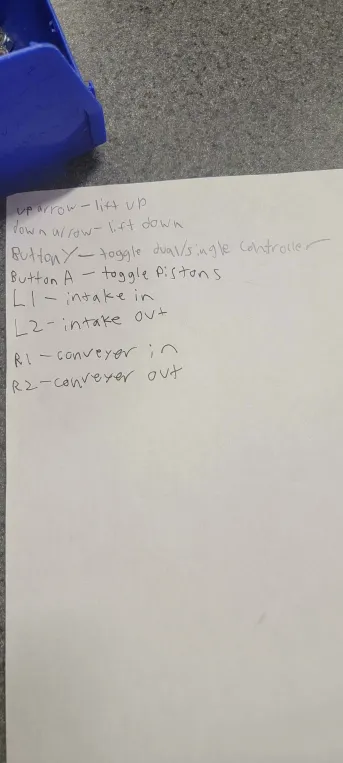 up arrow - lift up
down arrow - lift down
Button Y - toggle dual/single controller
Button A - toggle Pistons
L1 - intake in
L2 - intake out
R1 - conveyer in
R2 - conveyer out